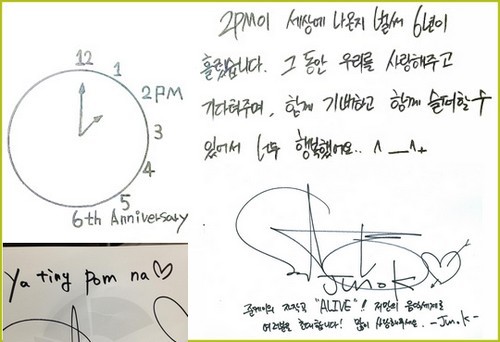 12
1
2PM
3
4
5
6th Anniversary
Ya tiny pom na♡
2PM이 세상에 나온지 벌써 6년이
흘렀습니다. 그 동안 우리를 사랑해주고
기다려주며, 함께 기뻐하고 함께 슬퍼할 수
있어서 너무 행복했어요.. ^__^+
Jun.K
"ALIVE"!! 저만의 음악세계로
여러분을 초대합니다! 많이 사랑해주세요. -Jun.K-